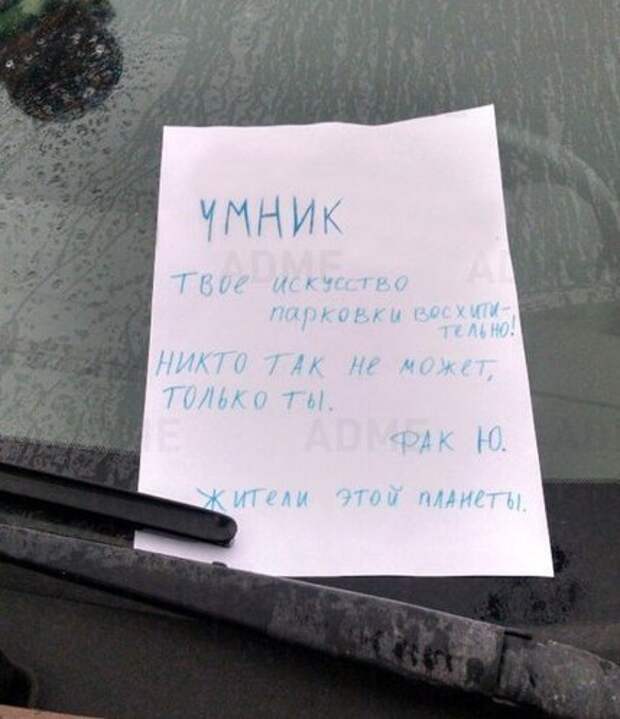 УМНИК
ТВОЕ ИСКУССТВО
ПАРКОВКИ ВОСХИТИ-
ТЕЛЬНО!
НИКТО ТАК НЕ МОЖЕТ,
ТОЛЬКО ТЫ.
ФАК Ю.
ЖИТЕЛИ ЭТОЙ ПЛАНЕТЫ.
ADME